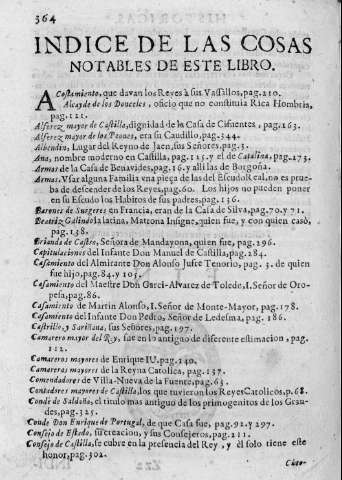 364
INDICE DE LAS COSAS
NOTABLES DE ESTE LIBRO.
Acostamiento, que davan los Reyes à sus Vassallos, pag. 210.
Alcayde de los Donceles, oficio que no constituia Rica Hombria,
pag. 121.
Alferez mayor de Castilla, dignidad de la Casa de Cifuentes, pag. 163.
Alferez mayor de los Peones, era su Caudillo, pag. 344.
Albendin, Lugar del Reyno de Jaen, sus Señores, pag. 3.
Ana, nombre moderno en Castilla, pag. 115. y el de Catalina, pag. 173.
Armas de la Casa de Benavides, pag. 16. y alli las de Borgoña.
Armas. Usar alguna Familia vna pieça de las del Escudo Real, no es prue-
ba de descender de los Reyes, pag. 60. Los hijos no pueden poner
en su Escudo los Habitos de sus padres, pag. 136.
Barones de Surgeres en Francia, eran de la Casa de Silva, pag. 70. y 71.
Beatriz Galindo la latina, Matrona Insigne, quien fue, y con quien casò,
pag. 138.
Brianda de Castro, Señora de Mandayona, quien fue, pag. 296.
Capitulaciones del Infante Don Manuel de Castilla, pag. 284.
Casamiento del Almirante Don Alonso Jufre Tenorio, pag. 3. de quien
fue hijo, pag. 84. y 105.
Casamiento del Maestre Don Garci-Alvarez de Toledo, I. Señor de Oro-
pesa, pag. 86.
Casamiento de Martin Alonso, I. Señor de Monte-Mayor, pag. 178.
Casamiento del Infante Don Pedro, Señor de Ledesma, pag. 186.
Castrillo, y Sariñana, sus Señores, pag. 197.
Camarero mayor del Rey, fue en lo antiguo de diferente estimacion, pag.
112.
Camareros mayores de Enrique IV. pag. 140.
Camareros mayores de la Reyna Catolica, pag. 137.
Comendadores de Villa-Nueva de la Fuente, pag. 63.
Contadores mayores de Castilla, los que tuvieron los Reyes Catolicos, p. 68.
Conde de Saldaña, el titulo mas antiguo de los primogenitos de los Gran-
des, pag. 325.
Conde Don Enrique de Portugal, de que Casa fue, pag. 92. y 297.
Consejo de Estado, su creacion, y sus Consejeros, pag. 211.
Consejo de Castilla, se cubre en la presencia del Rey, y èl solo tiene este
honor, pag. 302.